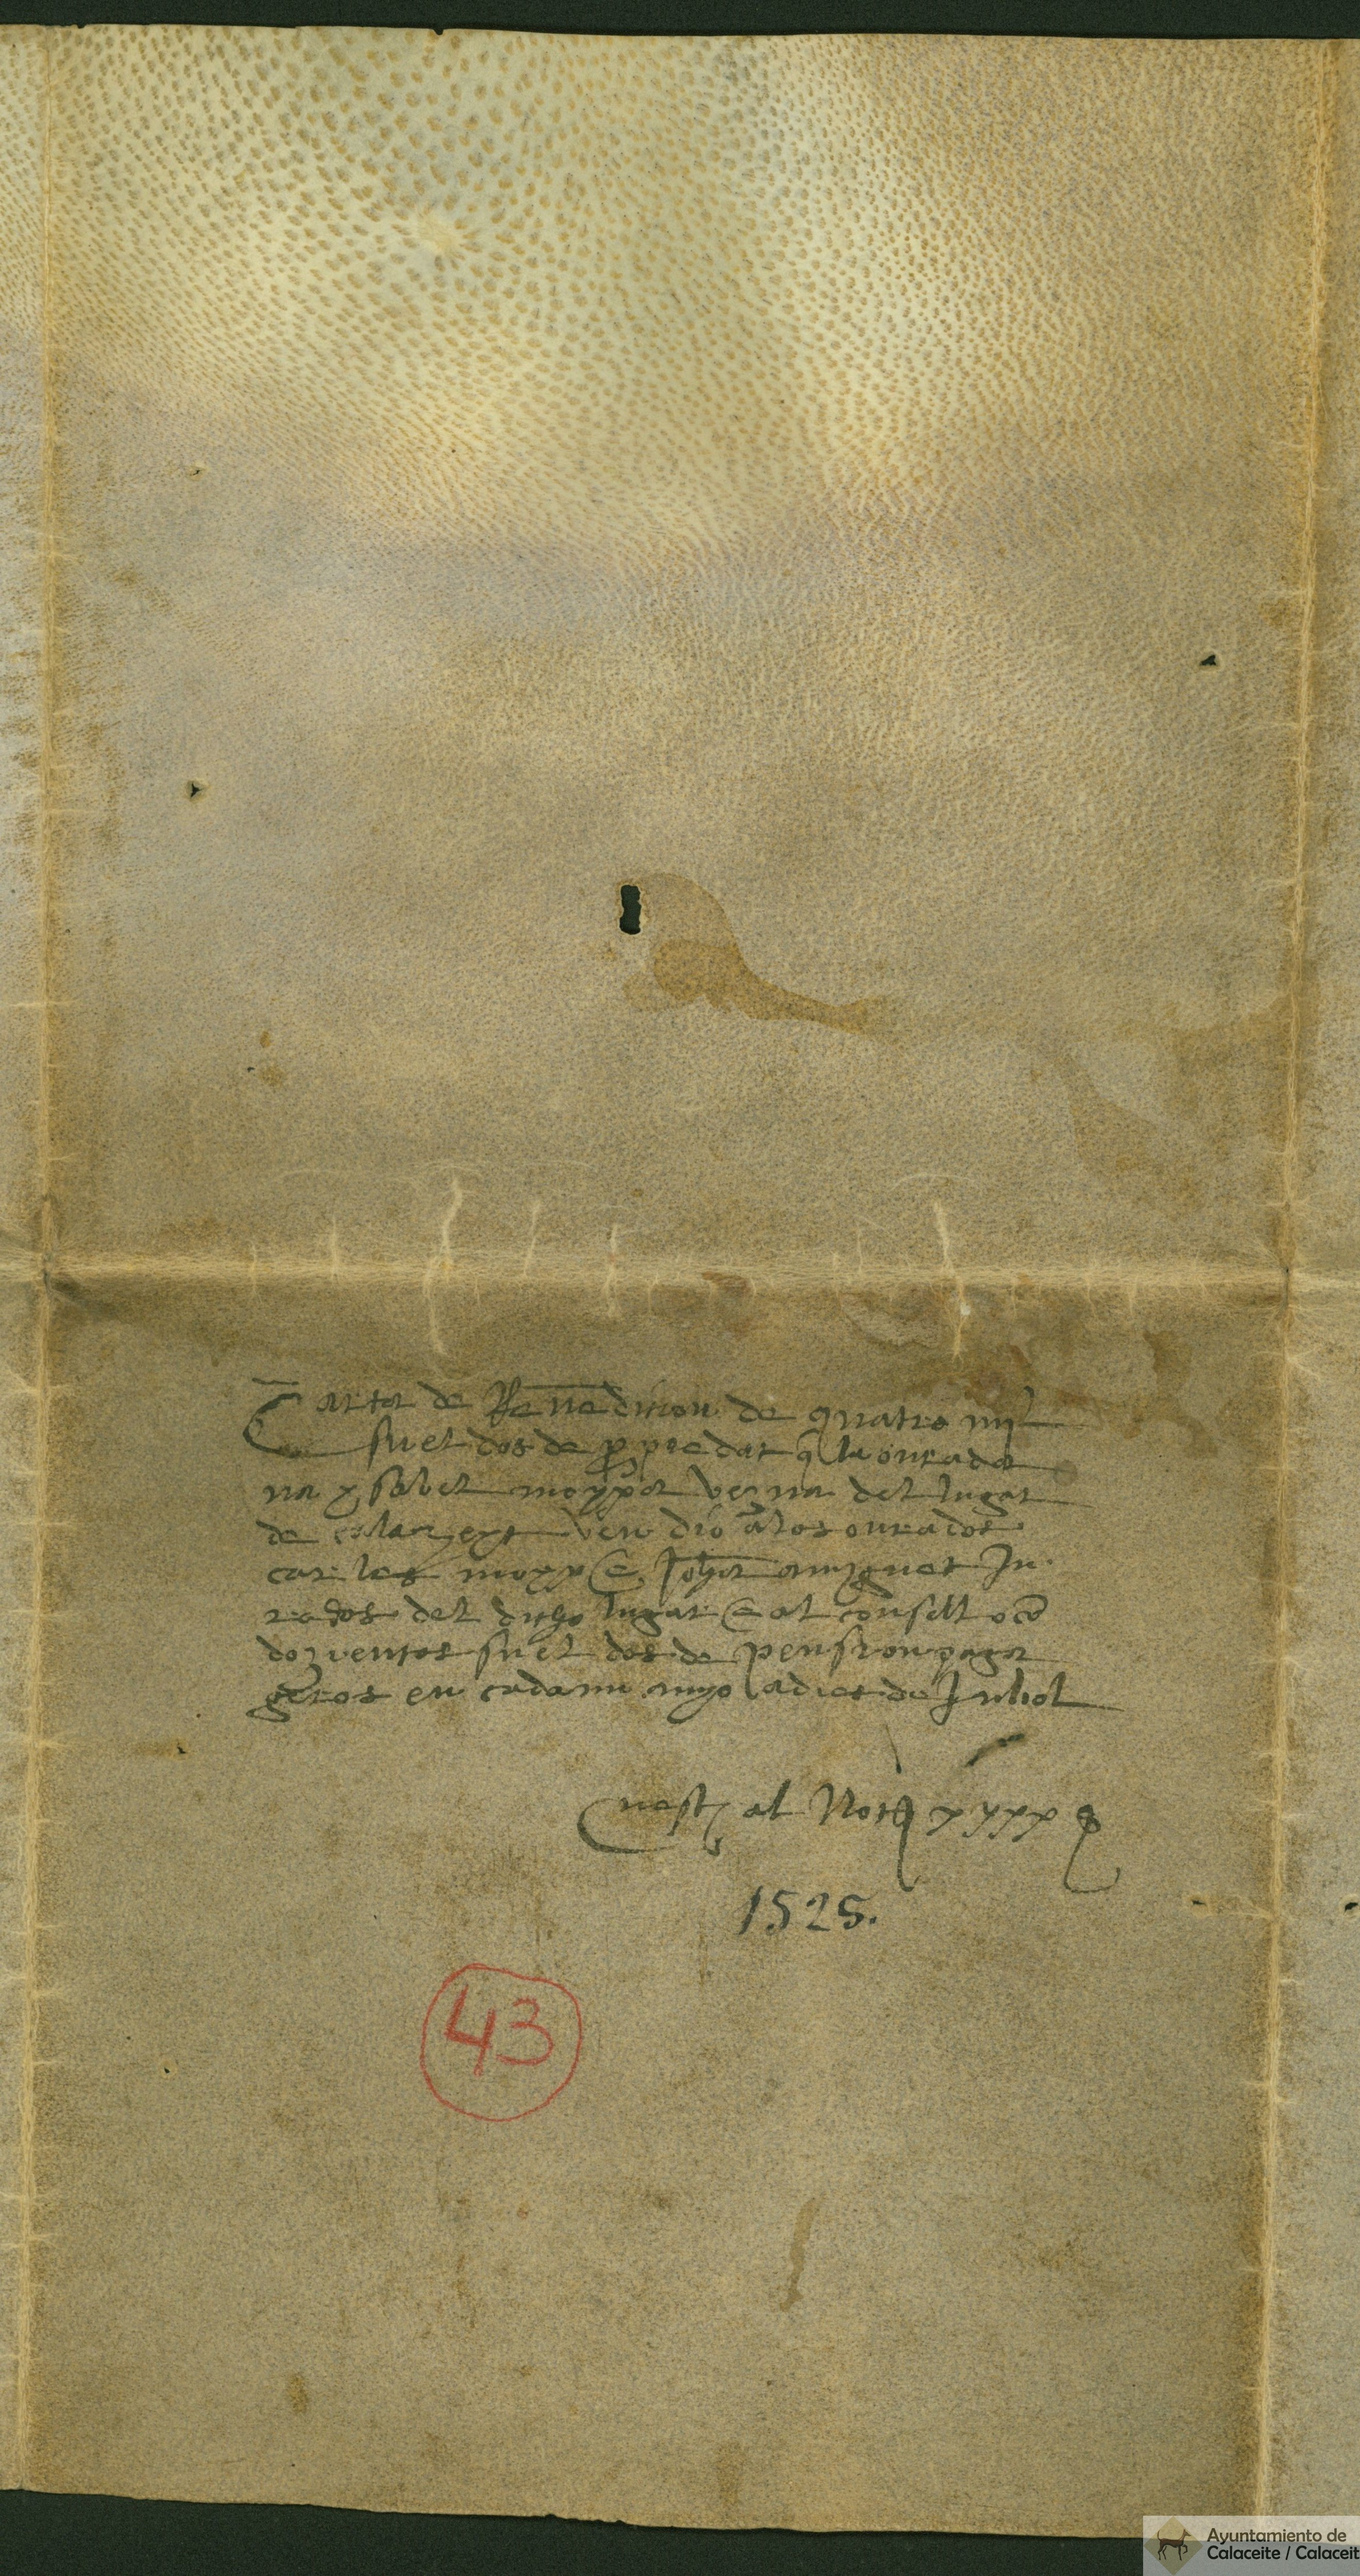 Carta de Revendicion de quatro mil
sueldos de propiedat q̄ la onrada
na ysabel moyxa vezina del lugar
de calaçeyt vendio a los onrados
carles moyx e Johan amiguet Ju
rados del dicho lugar e al consell con
dozientos sueldos de pension paga
deros en cadaun anyo a dies de Juliol
al Not xxxx
1525.
43
Ayuntamiento de
Calaceite / Calaceit